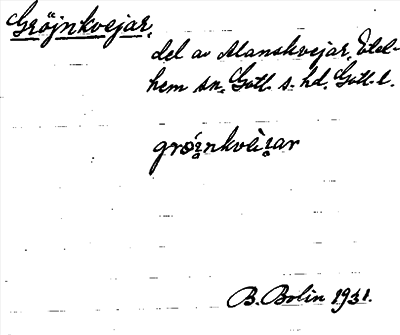 Gröjnkvejar,
del av Manskvejar, Etel-
hem sn. Gotl. s. hd. Gotl. l.
B. Bolin 1931.